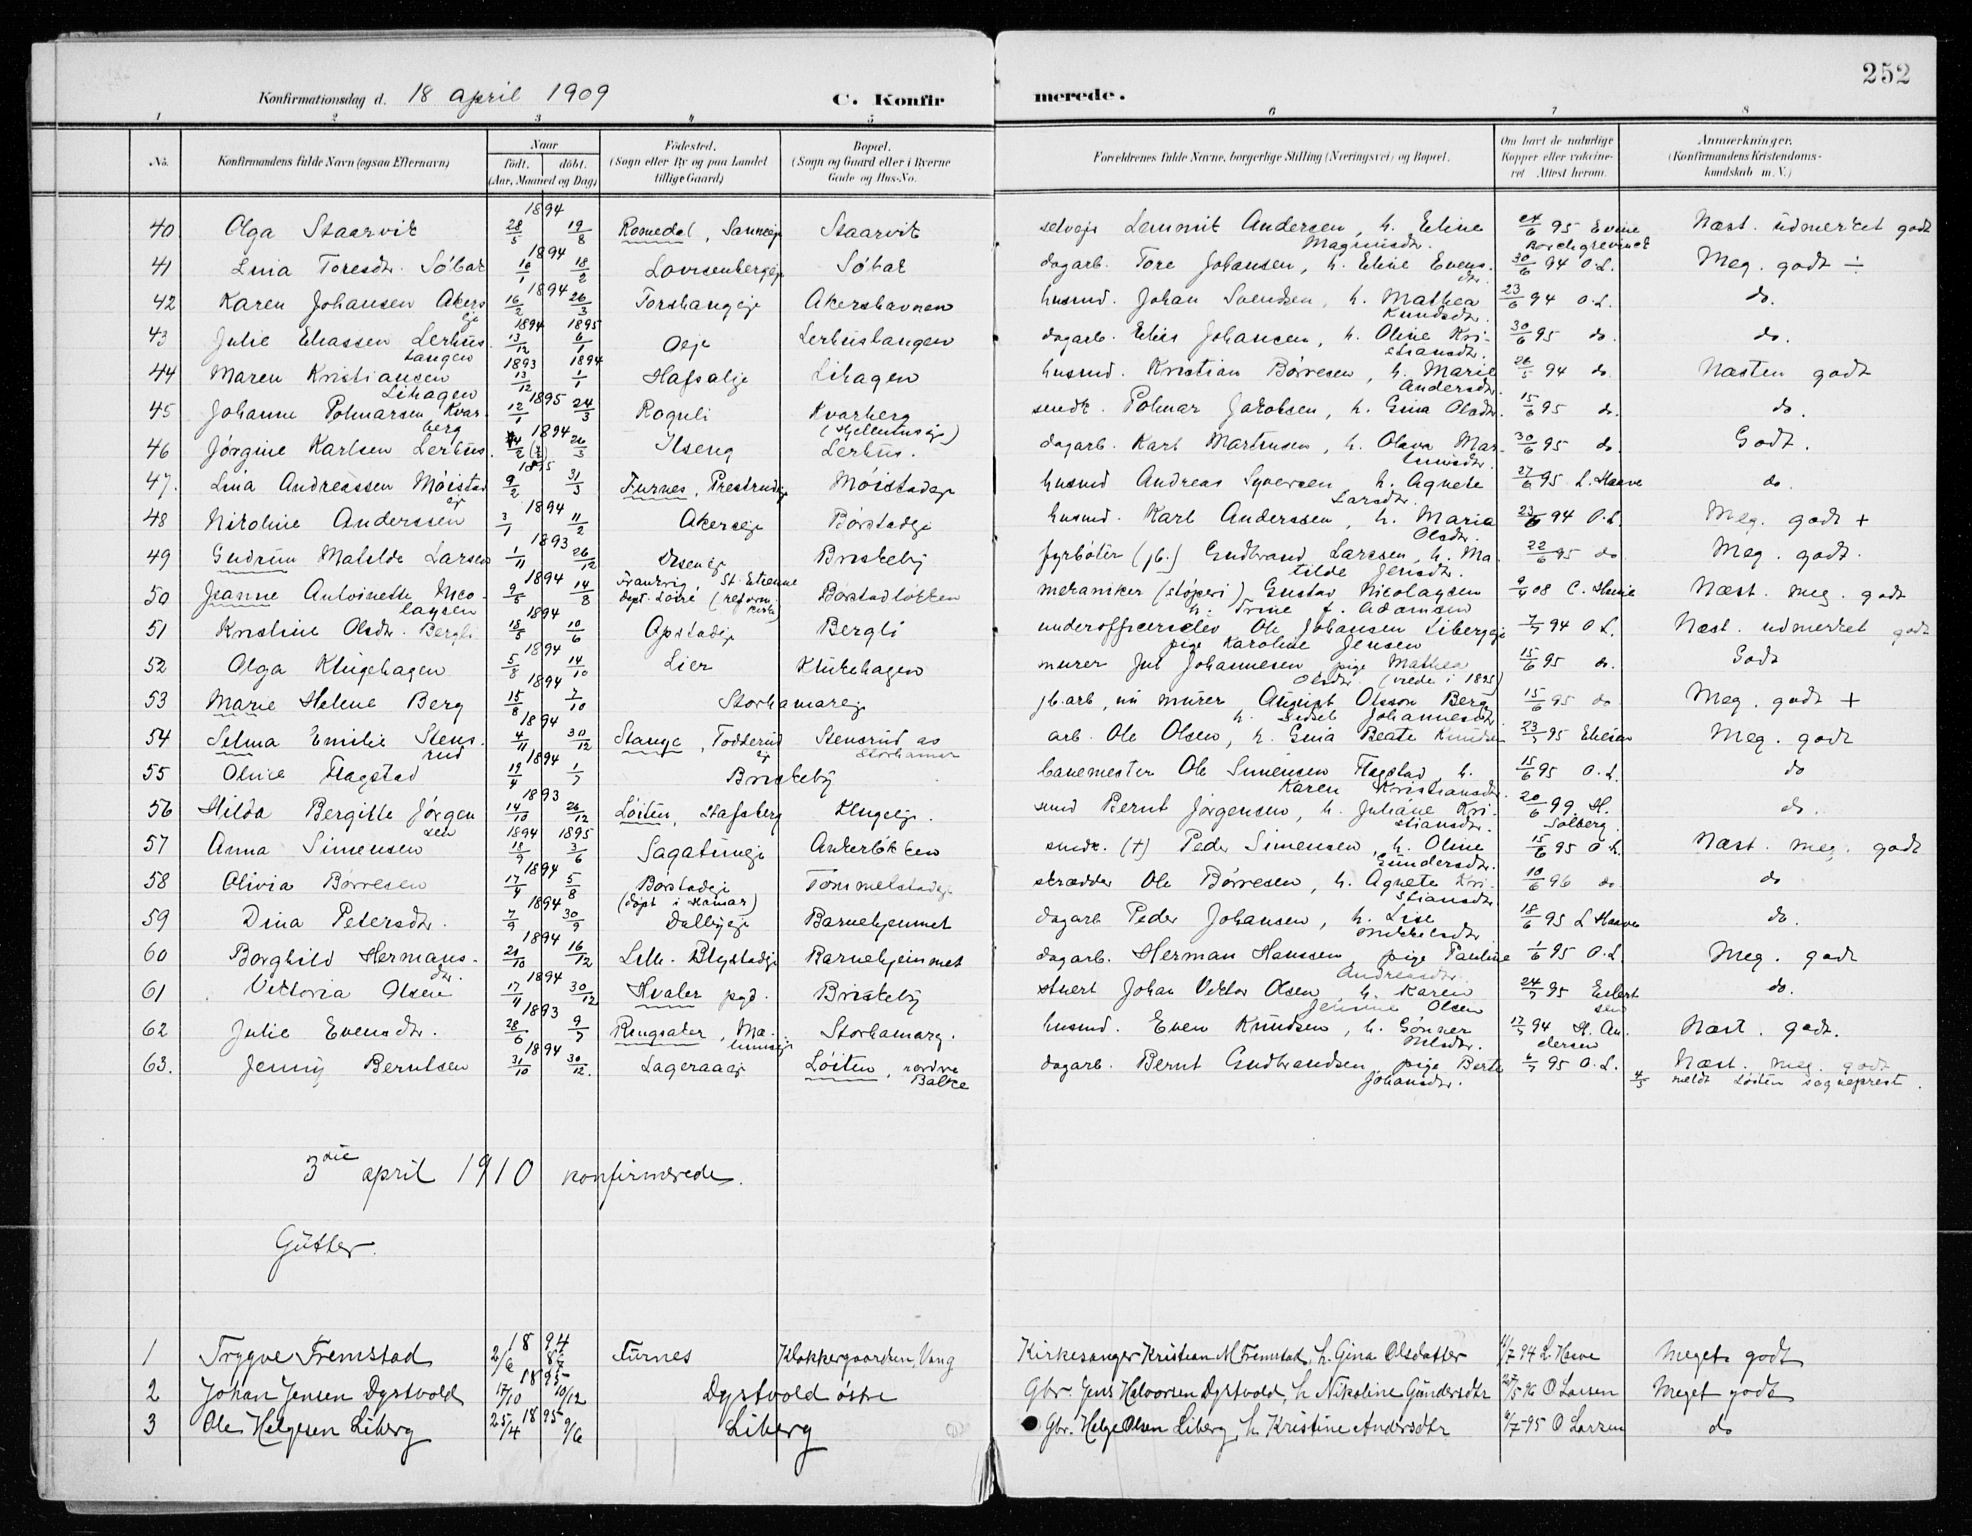 252
Konfirmationsdag d. 18 april 1909 C. Konfirmerede.
1 2 3 4 5 6 7 8
No. Konfirmandens fulde Navn (ogsaa Efternavn) Naar født. døbt. (Aar, Maaned og Dag) Fødested. (Sogn eller By og paa Landet tillige Gaard) Bopæl. (Sogn og Gaard eller i Byerne Gade og Hus-No. Forældrenes fulde Navne, borgerlige Stilling (Næringsvei) og Bopæl. Om havt de naturlige Kopper eller vaccineret Attest herom. Anmærkninger. (Konfirmandens Kristendomskundskab m. V.)
40. Olga Staarvik 1894 28/5 19/8 Romedal, Sanneeje Staarvik selvejr Lemmit Andersen, h. Eline Magnusdr. 24/6 95 Evine Borchgrevinck Næst. udmerket godt
41 Lina Toresdr. Søbak 1894 16/1 18/2 Lovisenbergeje Søbak dagarb. Tore Johansen, h. Eline Evensdr. 30/6 94 O.L. Meg. godt ÷
42 Karen Johansen Akerseje 1894 16/2 26/3 Torshaugeje Akershavnen husmd. Johan Svendsen, h. Mathea Knudsdr. 23/6 94 O.L. do.
43 Julie Eliassen Lerhuslangen 1894 13/12 1895 6/1 Oeje Lerhuslangen dagarb. Elias Johansen, h. Oline Kristiansdr. 30/6 95 do. do.
44 Maren Kristiansen Lihagen 1893 13/12 1894 1/1 Hafsaleje Lihagen husmd. Kristian Børresen, h. Marie Andersdr. 26/5 94 do Næsten godt
45 Johanne Polmarsen Kvarberg 1895 12/1 24/3 Rognli Kvarberg (Hjellumseje) snedk. Polmar Jakobsen, h. Gina Olsdr. 15/6 95 do. do.
46 Jørgine Karlsen Lerhus. 1894 26/3 Ilseng Lerhus. dagarb. Karl Martinsen, h. Olava Martinusdr. 30/6 95 do Godt.
47. Lina Andreassen Møistadeje 1895 9/2 31/3 Furnes, Prestrudeje Møistadeje husmd Andreas Syversen h. Agnete Larsdr. 27/6 95 L. Haave do.
48 Nikoline Anderssen 1894 3/1 11/2 Akerseje Børstadeje husmd. Karl Anderssen, h. Maria Olsdr. 23/6 94 O.L. Meg. godt +
49 Gudrun Matilde Larsen 1893 1/11 26/12 Briskeby fyrbøter (jb.) Gudbrand Larssen, h. Matilde Jensdr. 22/6 95 do Meg. godt.
50 Jeanne Antoinette Nicolaysen 1894 9/5 14/8 Frankrig, St. Etienne Dept. Loire (reform. kirke) Børstadløkken mekaniker (støperi) Gustav Nicolaysen h. Trine f. Adamsen 9/4 08 C. Næst. meg. godt
51 Kristine Olsdr. Bergli 1894 18/5 10/6 Opstadeje Bergli underofficerselev Ole Johansen Libergeje pige Karoline Jensen 7/7 94 O.L. Næst. udmerket godt
52 Olga Klukehagen 1894 5/8 14/10 Lier Klukehagen murer Jul Johannesen pige Mathea Olsdr. (viede i 1895) 15/6 95 do. Godt
53 Marie Helene Berg 1894 15/8 7/10 Storhamareje jb.arb, nu murer August Olsson Berg h. Sidsel Johannesdr. 15/6 95 do Meg. godt +
54 Selma Emilie Stensrud 1894 4/11 30/12 Stange, Todderud ej Stensrud as Storhamar arb. Ole Olsen, h. Gina Beate Knudsen 23/7 95 Eliesen Meg. godt
55 Oline Flagstad 1894 19/4 1/7 Briskeby banemester Ole Simensen Flagstad, h. Karen Kristiansdr. 15/6 95 O.L. do
56 Hilda Bergitte Jørgensen 1893 14/10 26/12 Løiten, Stafsberg Klugeeje. smed Bernt Jørgensen, h. Juliane Kristiansdr. 20/6 99 H. Solberg. do.
57 Anna Simensen 1894 18/9 1895 3/6 Sagatuneje Ankerløkken snedk. (+) Peder Simensen, h. Oline Gundersdr. 15/6 95 O.L. Næst. meg. godt
58 Olivia Børresen 1894 17/4 5/8 Børstadeje (døpt i Hamar) Tommelstadeje skrædder Ole Børresen, h. Agnete Kristiansdr. 10/6 96 do do
59 Dina Petersdtr. 1894 7/9 30/9 Dalbyeje Barnehjemmet dagarb Peder Johansen, h. Lise Mikkelsdtr 18/6 95 L Haave do.
60 Borghild Hermansdr. 1894 21/10 16/12 Lille Blystadeje Barnehjemmet dagarb. Herman Hanssen, pige Pauline Andreasdr. 1/6 95 O.L. Meg. godt
61 Viktoria Olsen 1894 17/11 30/12 Hvaler pgd. Briskeby stuert Johan Viktor Olsen, h. Karen Jensine Olsen 24/7 95 Eilertsen do.
62 Julie Evensdtr. 1893 28/6 9/7 Ringsaker, Storhamarej. husmd. Even Knudsen, h. Gønner Nilsdtr. 17/7 94 H. Andersen Næst. godt.
63. Jenny Berntsen 1894 31/10 30/12. Lageraaej Løiten, nordre Balke dagarb. Bernt Gudbrandsen pige Berte Johansdtr. 6/7 95 O.L. Næst. meg. godt 4/5 meldt Løiten sogneprest.
3die april 1910 konfirmerede.
Gutter.
1 Trygve Fremstad 1894 2/6 Furnes Klokkergaarden, Vang Kirkesanger Kristian M Fremstad, h. Gina Olsdatter 94 L. Haave Meget godt
2 Johan Jensen Dystvold 1895 17/10 10/12 Dystvold østre Gbr. Jens Halvorsen Dystvold, h Nikoline Gundersdtr 27/5 96 O Larsen Meget godt
3 Ole Helgesen Liberg 1895 25/4 9/6 Liberg Gbr. Helge Olsen Liberg, h Kristine Andersdtr 6/7 95 O Larsen do